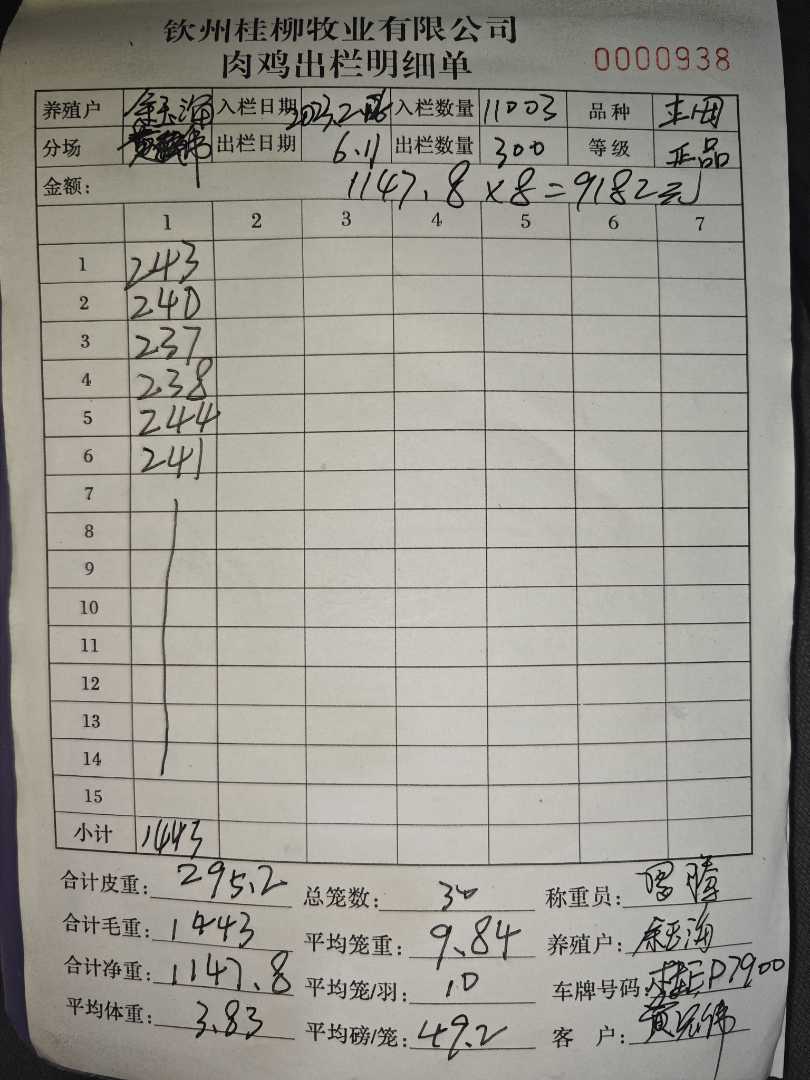 钦州桂柳牧业有限公司
肉鸡出栏明细单 0000938
养殖户 余玉海 入栏日期 2023.2.16 入栏数量 11003 品种
分场 出栏日期 6.11 出栏数量 300 等级 正品
金额: 1147.8×8=9182元
1 2 3 4 5 6 7
1 243
2 240
3 237
4 238
5 244
6 241
7
8
9
10
11
12
13
14
15
小计 1443
合计皮重: 295.2 总笼数: 30 称重员:
合计毛重: 1443 平均笼重: 9.84 养殖户: 余玉海
合计净重: 1147.8 平均笼/羽: 10 车牌号码: 桂EP7900
平均体重: 3.83 平均磅/笼: 49.2 客 户: